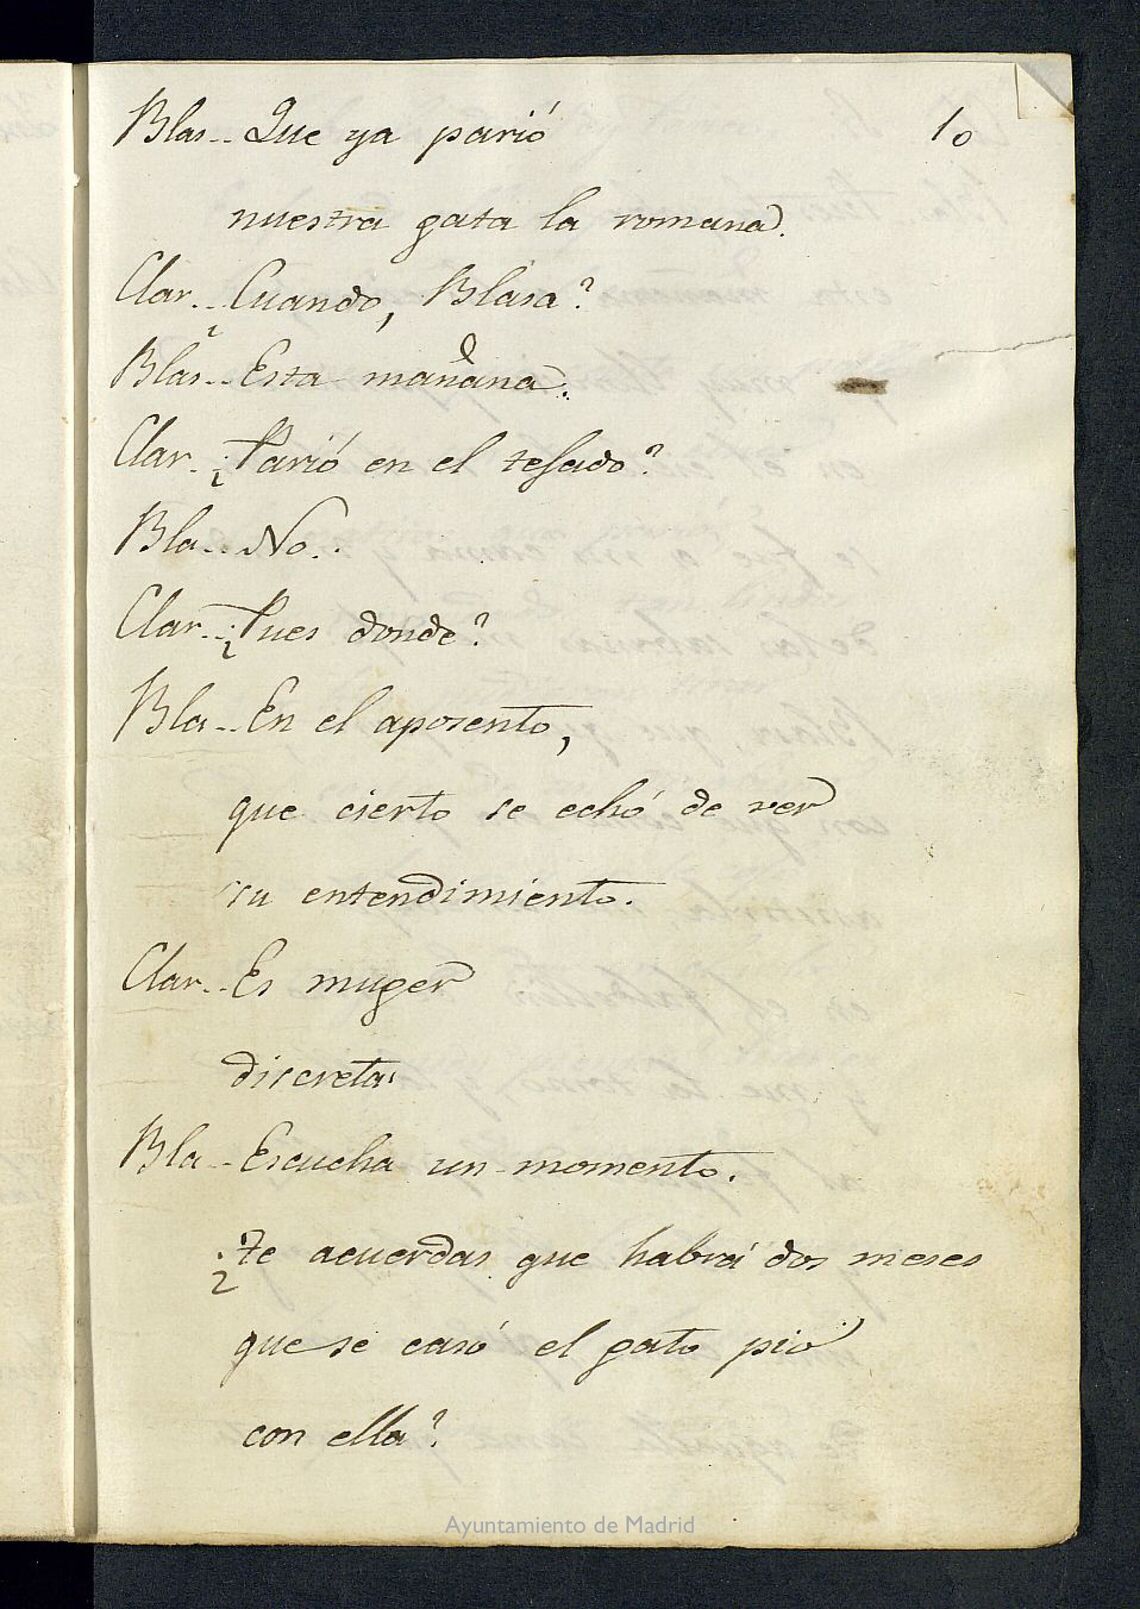 Blas.. Que ya parió 10
nuestra gata la romana.
Clar... ¿Cuando, Blasa?
Blas.. Esta mañana.
Clar.. ¿Parió en el tejado?
Bla.. No..
Clar.. ¿Pues donde?
Bla.. En el aposento,
que cierto se echó de ver
su entendimiento.
Clar.. Es muger
discreta.
Bla.. Escucha un momento.
¿Te acuerdas que habrá dos meses
que se casó el gato pio
con ella?
Ayuntamiento de Madrid